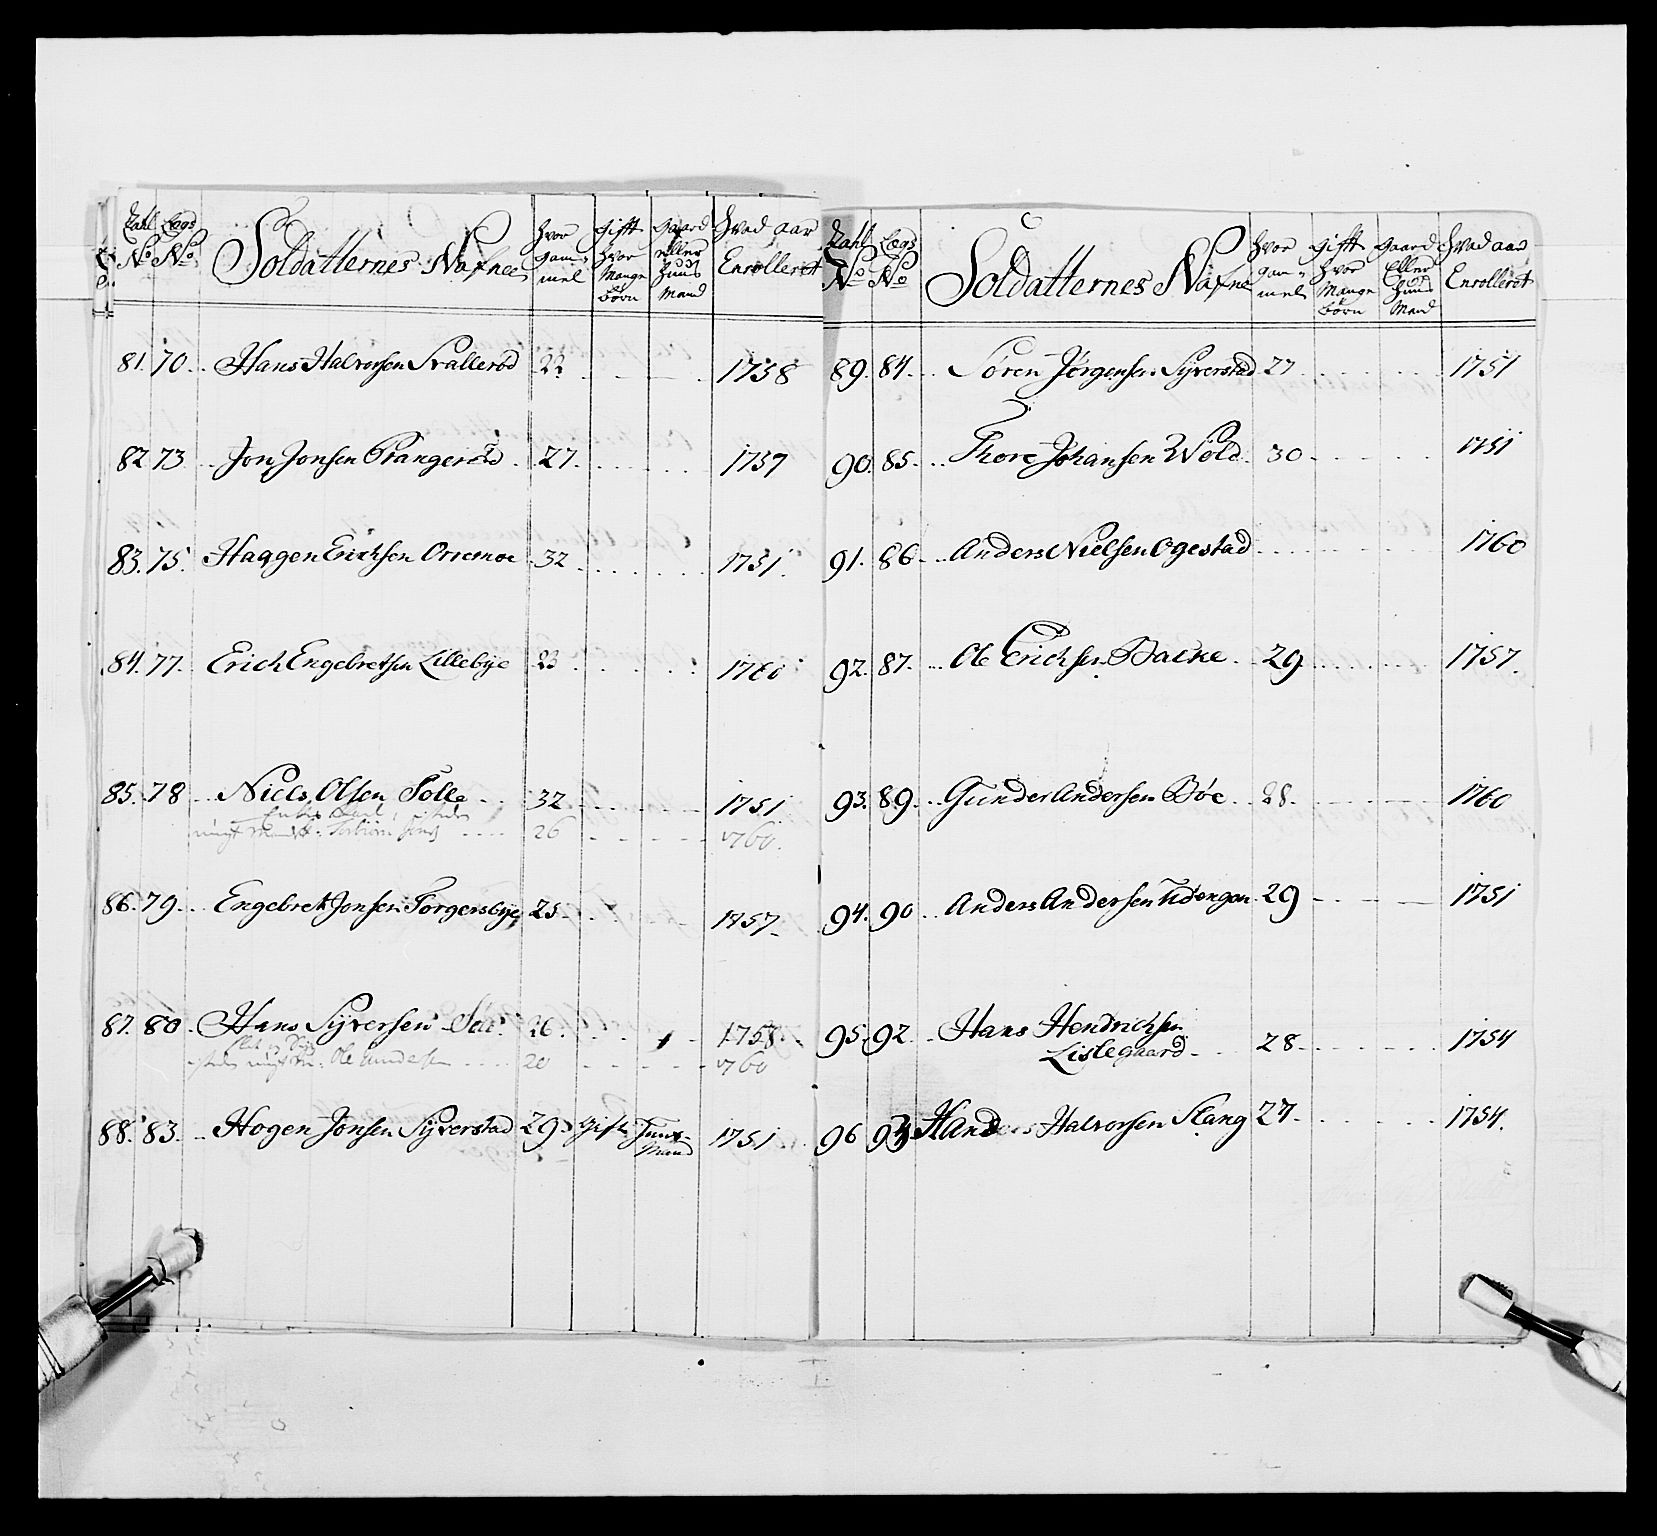 Zahl No Lægs No Soldatternes Nafne hvor gam= mel gifft hvor Mange børn gaard Eller Huus Mand Hvad aar Enrolleret
81. 70. Hans Halvorsen Svallerød 22 1758
82 73 Jon Jonsen Prangerød 27. 1757
83. 75. Haggen Erichsen Orremoe 32 1751.
84. 77. Erich Engebretsen Lillebye 23 1760
85. 78 Niels Olsen Tolle 32 1751
26 1760.
86. 79. Engebret Jonsen Torgersbye 25. 1757
87. 80 Hans Syversen 26. 1758.
Ole 20 1760
88. 83. Hogen Jonsen Syverstad 29 Gift Huus- Mand 1751
Zahl No Lægs No Soldatternes Nafne hvor gam= mel gifft hvor Mange børn gaard Eller Huus Mand Hvad aar Enrolleret
89. 84. Søren Jørgensen Syverstad 27 1751
90. 85. Thore Johansen Wold 30 1751
91. 86 Anders Nielsen Ogestad 1760
92. 87. Ole Erichsen Backe 29 1757.
93. 89. Gunder Andersen Bøe 28. 1760
94. 90 Anders Andersen 29 1751
95. 92. Hans Hendrichsen
Lislegaard 28 1754
96 93 Hans Halvorsen Slang 27. 1754.